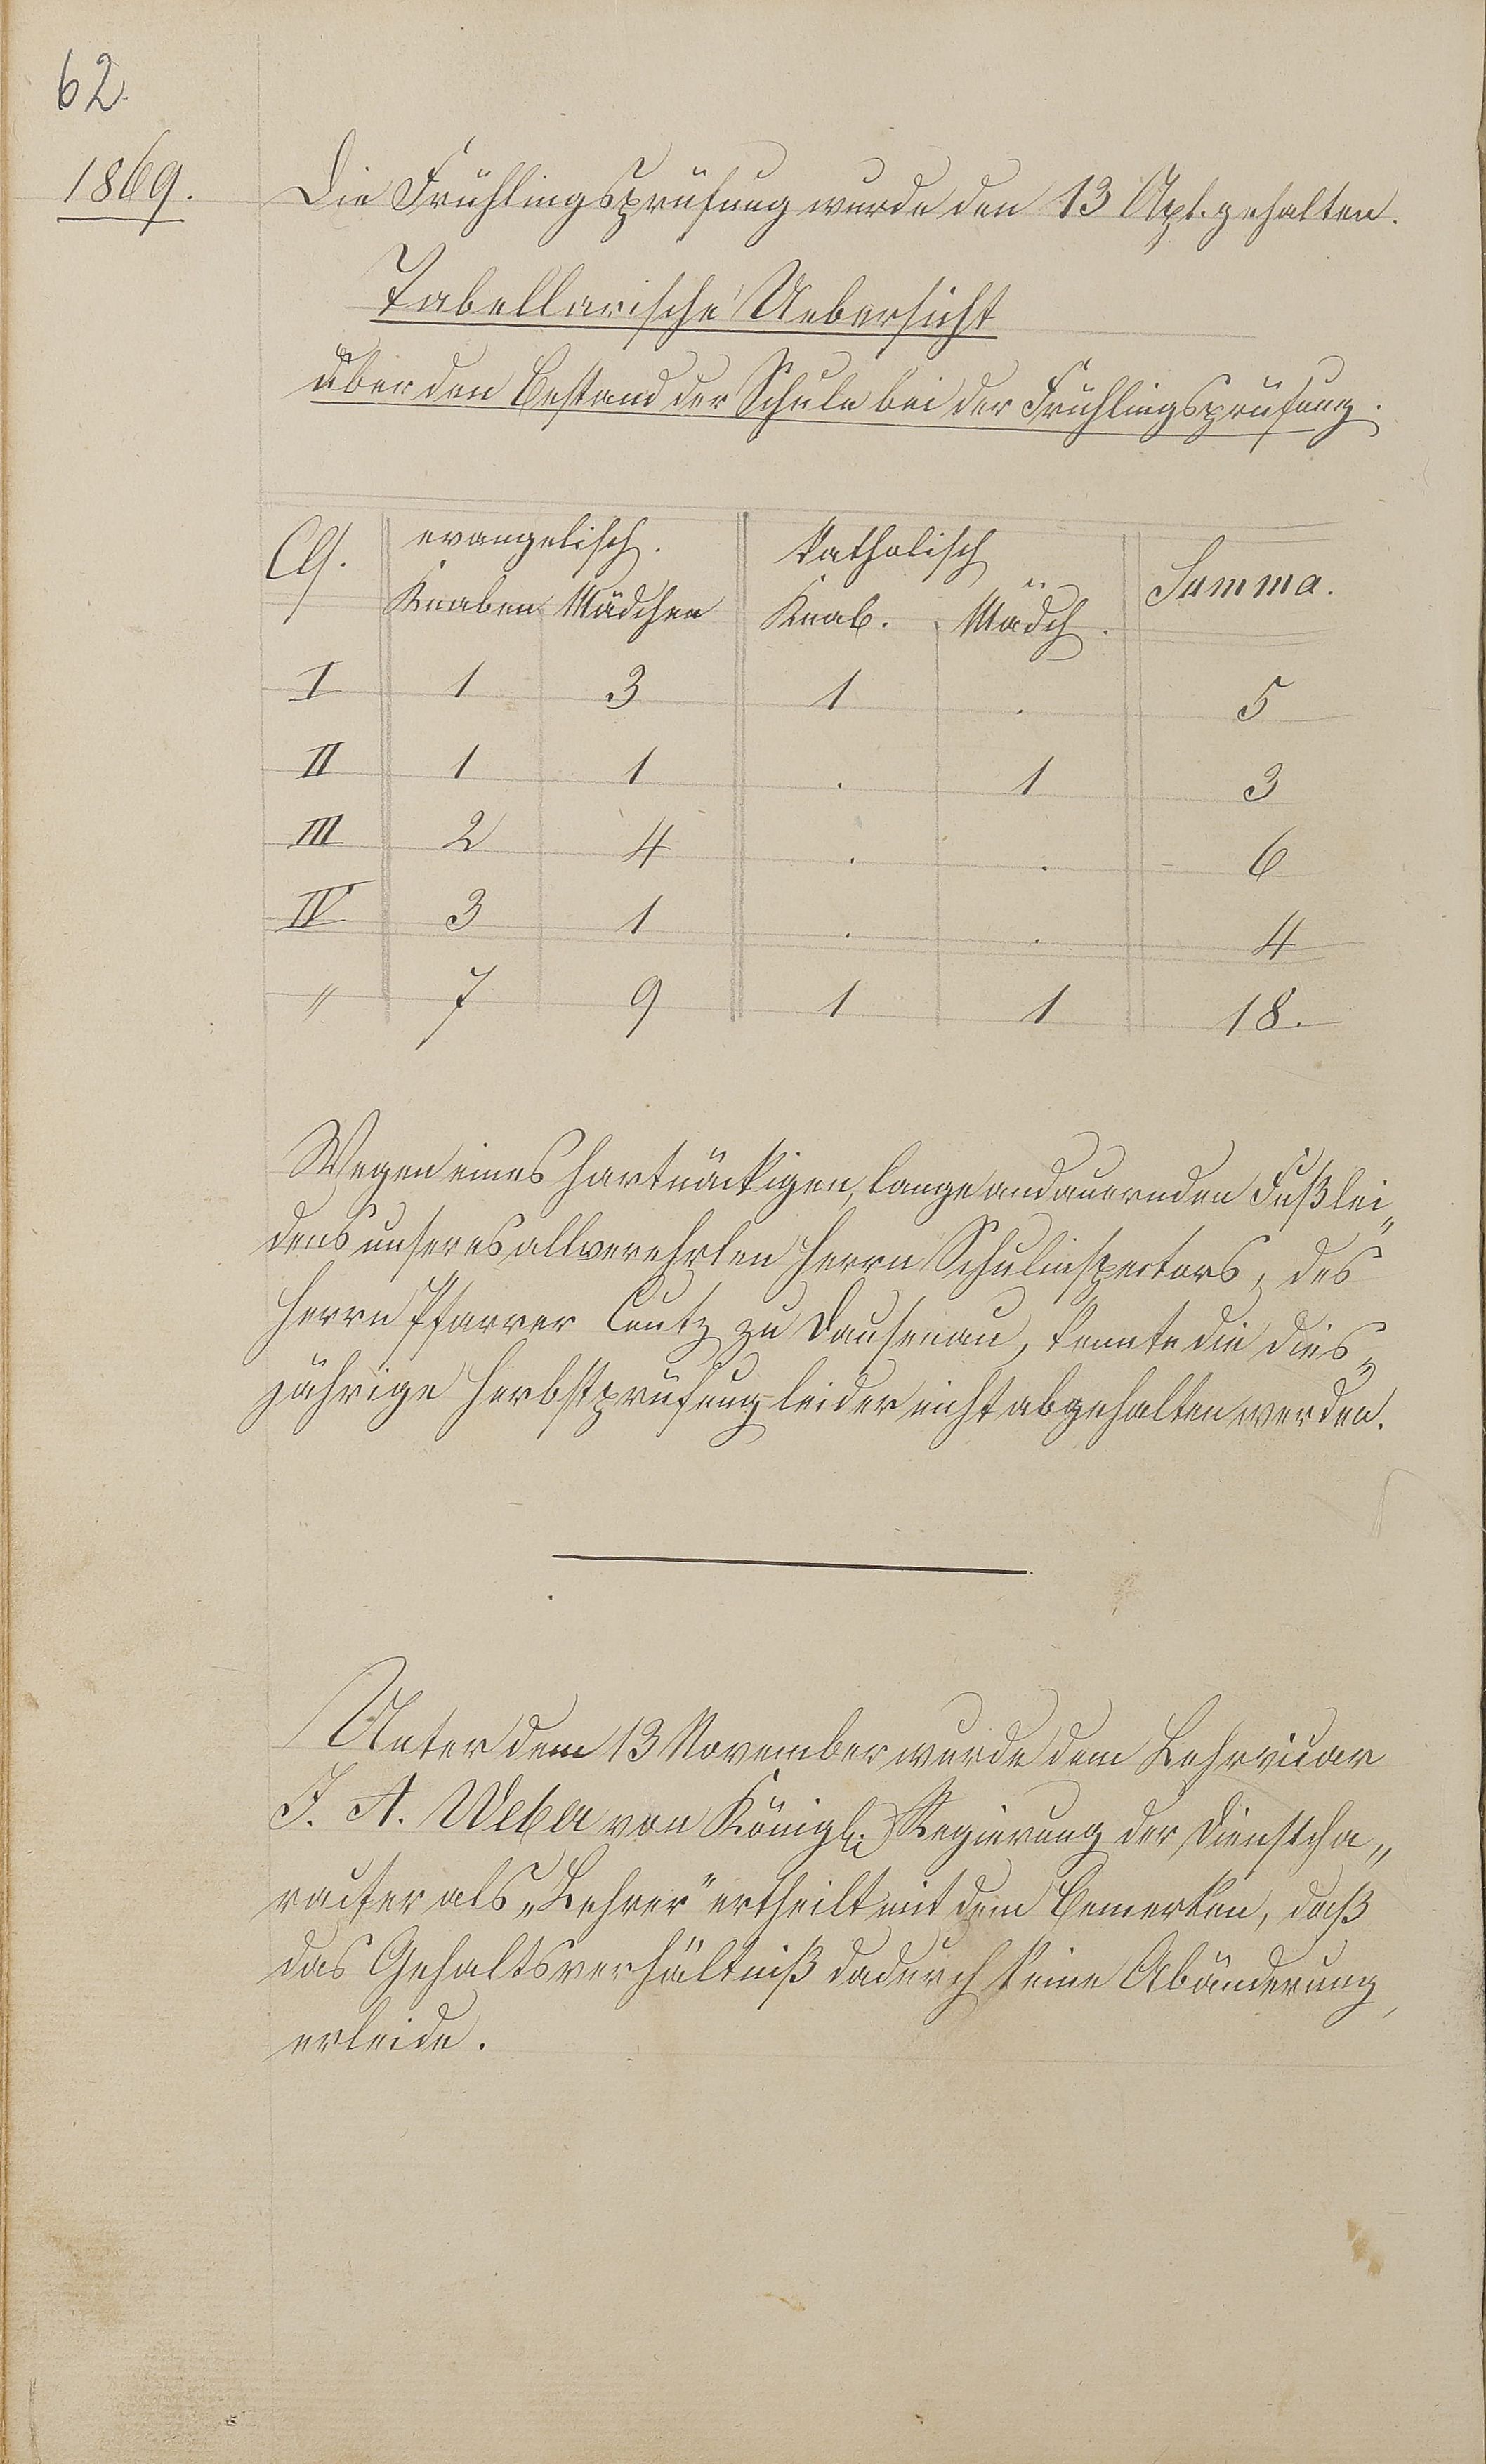 62.
1869.
Die Frühlingsprüfung wurde den 13 Apl. gehalten.
Tabellarische Uebersicht
über den Bestand der Schule bei der Frühlingsprüfung.
Cls. evangelisch. katholisch Summa.
Knaben Mädchen Knab. Mädch.
I 1 3 1 . 5
II 1 1 . 1 3
III 2 4 . . 6
IV 3 1 . . 4
" 7 9 1 1 18.
Wegen eines hartnäckigen, lange andauernden Fußlei„
dens unseres allverehrten Herrn Schulinspectors, des
Herrn Pfarrer zu Dausenau, konnte die dies„
jährige Herbstprüfung leider nicht abgehalten werden.
Unter dem 13 November wurde dem Lehrvicar
J. A. Weber von Königl. Regierung der Dienstcha„
racter als „Lehrer" ertheilt mit dem Bemerken, daß
das Gehaltsverhältniß dadurch keine Abänderung
erleide.